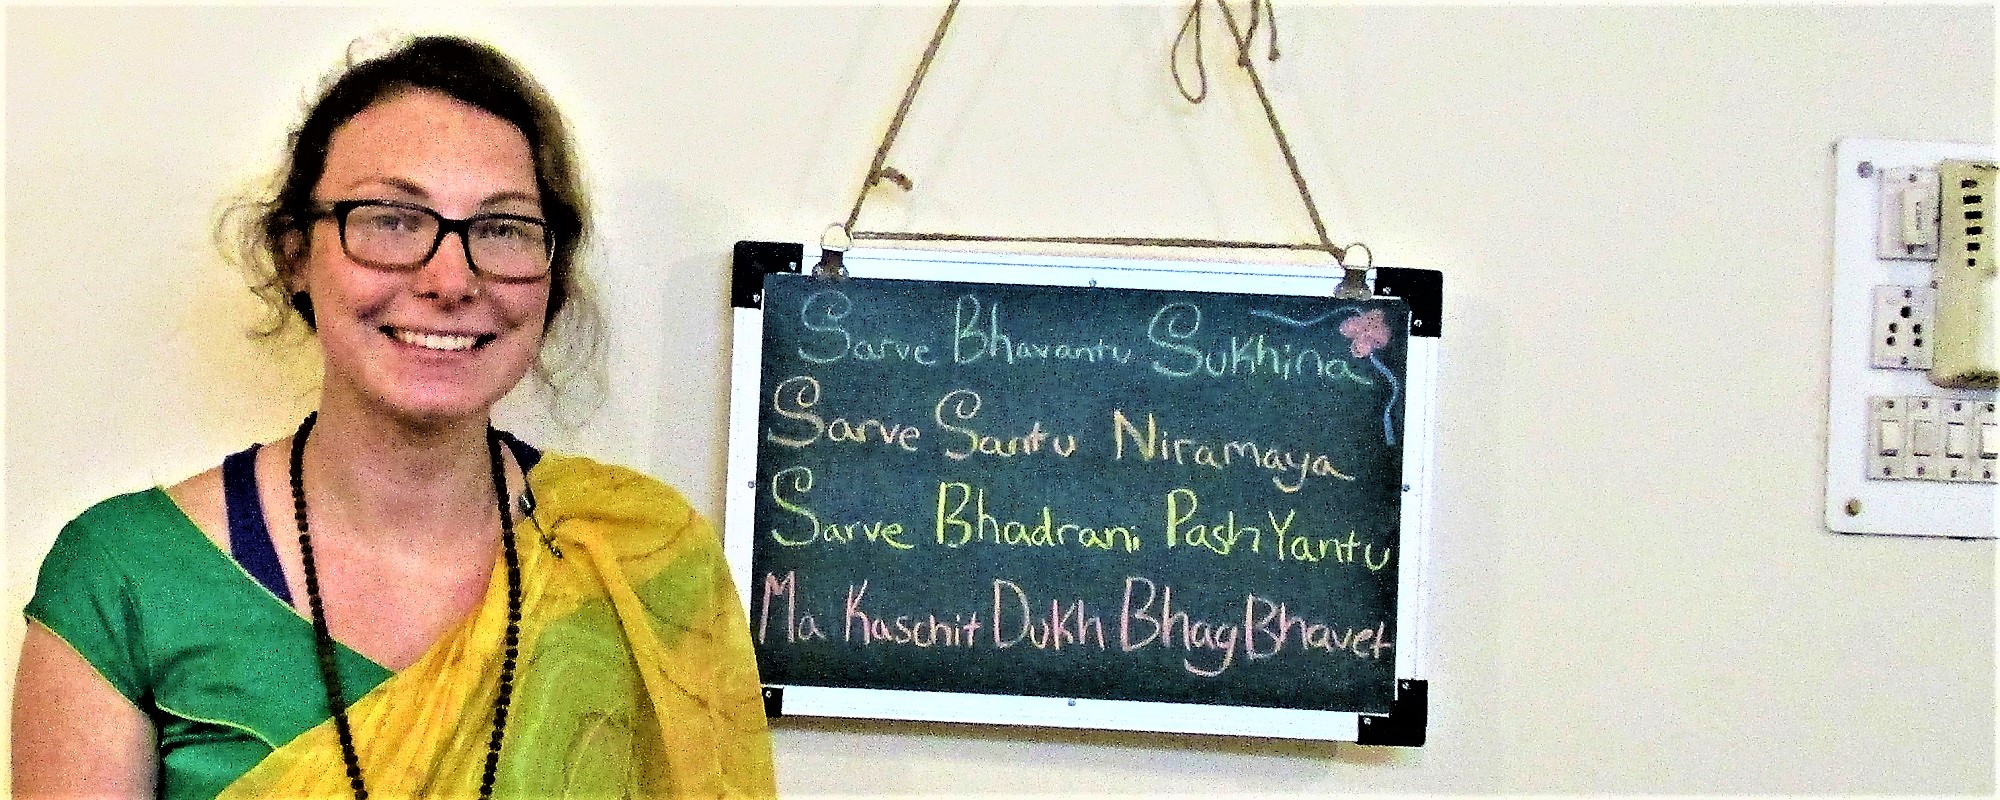 Sarve Bhavantu Sukhina
Sarve Santu Niramaya
Sarve Bhadrani PashYantu
Ma Kaschit Dukh Bhag Bhavet